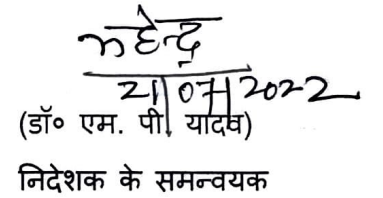 महेन्द्र
21/07/2022
(डॉ० एम. पी. यादव)
निदेशक के समन्वयक